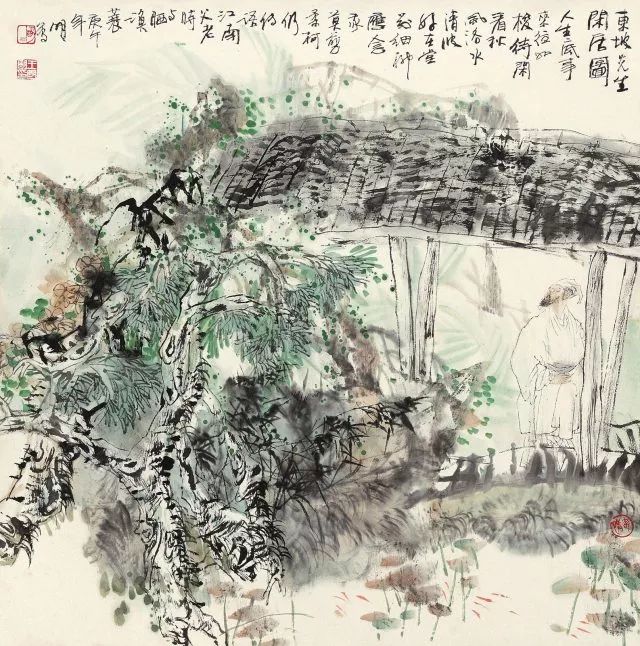 東坡先生
閑居圖
人生底事
來往如
梭待閑
看秋
風洛水
清波
好在堂
前細柳
應念
我
莫剪
柔柯
仍
傳語
江南
父老
時
与晒
漁
蓑
庚午
年